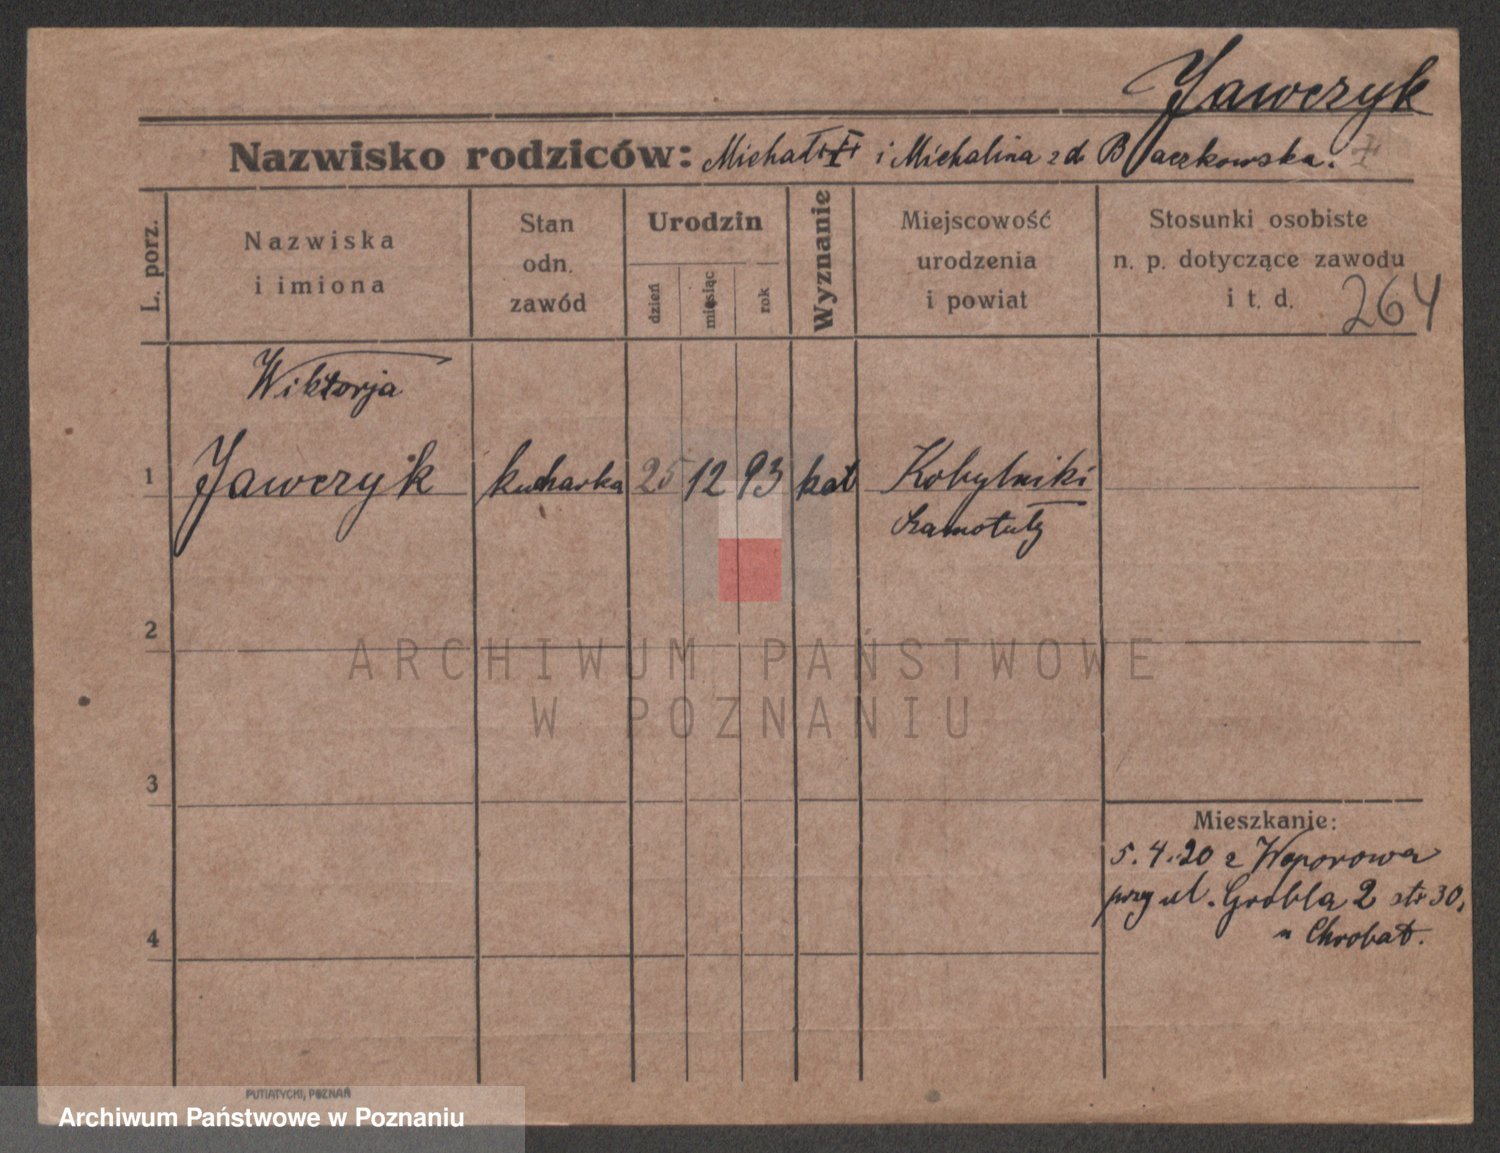 Jawczyk
Nazwisko rodziców: Michał i Michalina z d Baczkowska.
L. porz.
Nazwiska
i imiona
Stan
odn.
zawód
Urodzin
dzień
miesiąc
rok
Wyznanie
Miejscowość
urodzenia
i powiat
Stosunki osobiste
n. p. dotyczące zawodu
i t. d. 264
Wiktorja
1 Jawczyk kucharka 25 12 93 kat Kobylniki
Szamotuły
2
3
4
Mieszkanie:
5.4.20 z Woporowa
przy ul. Grobla 2 str 30,
u Chrobat.
ARCHIWUM PAŃSTWOWE
W POZNANIU
PUTIATYCKI, POZNAŃ
Archiwum Państwowe w Poznaniu